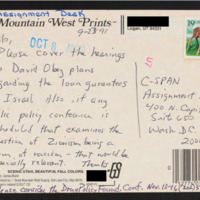 Assignment Desk
Mountain West Prints
Logan, UT 84321
9-23-91
OCT 8
Please cover the hearings
David Obey plans
regarding the loan guarantees
Israel Also, if any
public policy conference is
scheduled that examines the
question of Zionism being a
of racism - that would be
relevant. Thanks,
C-SPAN
Assignment
400 N. Capitol
Suite 650
Wash. D.C.
2000
19
5
SCENIC UTAH, BEAUTIFUL FALL COLORS
68
Please consider the Drug Policy Found. Conf. Nov. 13-16